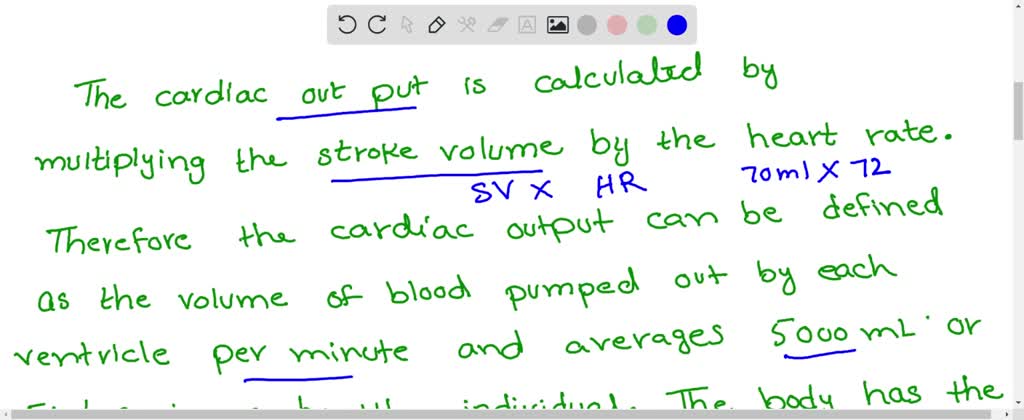 The cardiac out put is calculated by
multiplying the stroke volume by the heart rate.
SV X HR 70ml X 72
Therefore the cardiac output can be defined
as the volume of blood pumped out by each
ventricle per minute and averages 5000 mL or
individual. The body has the